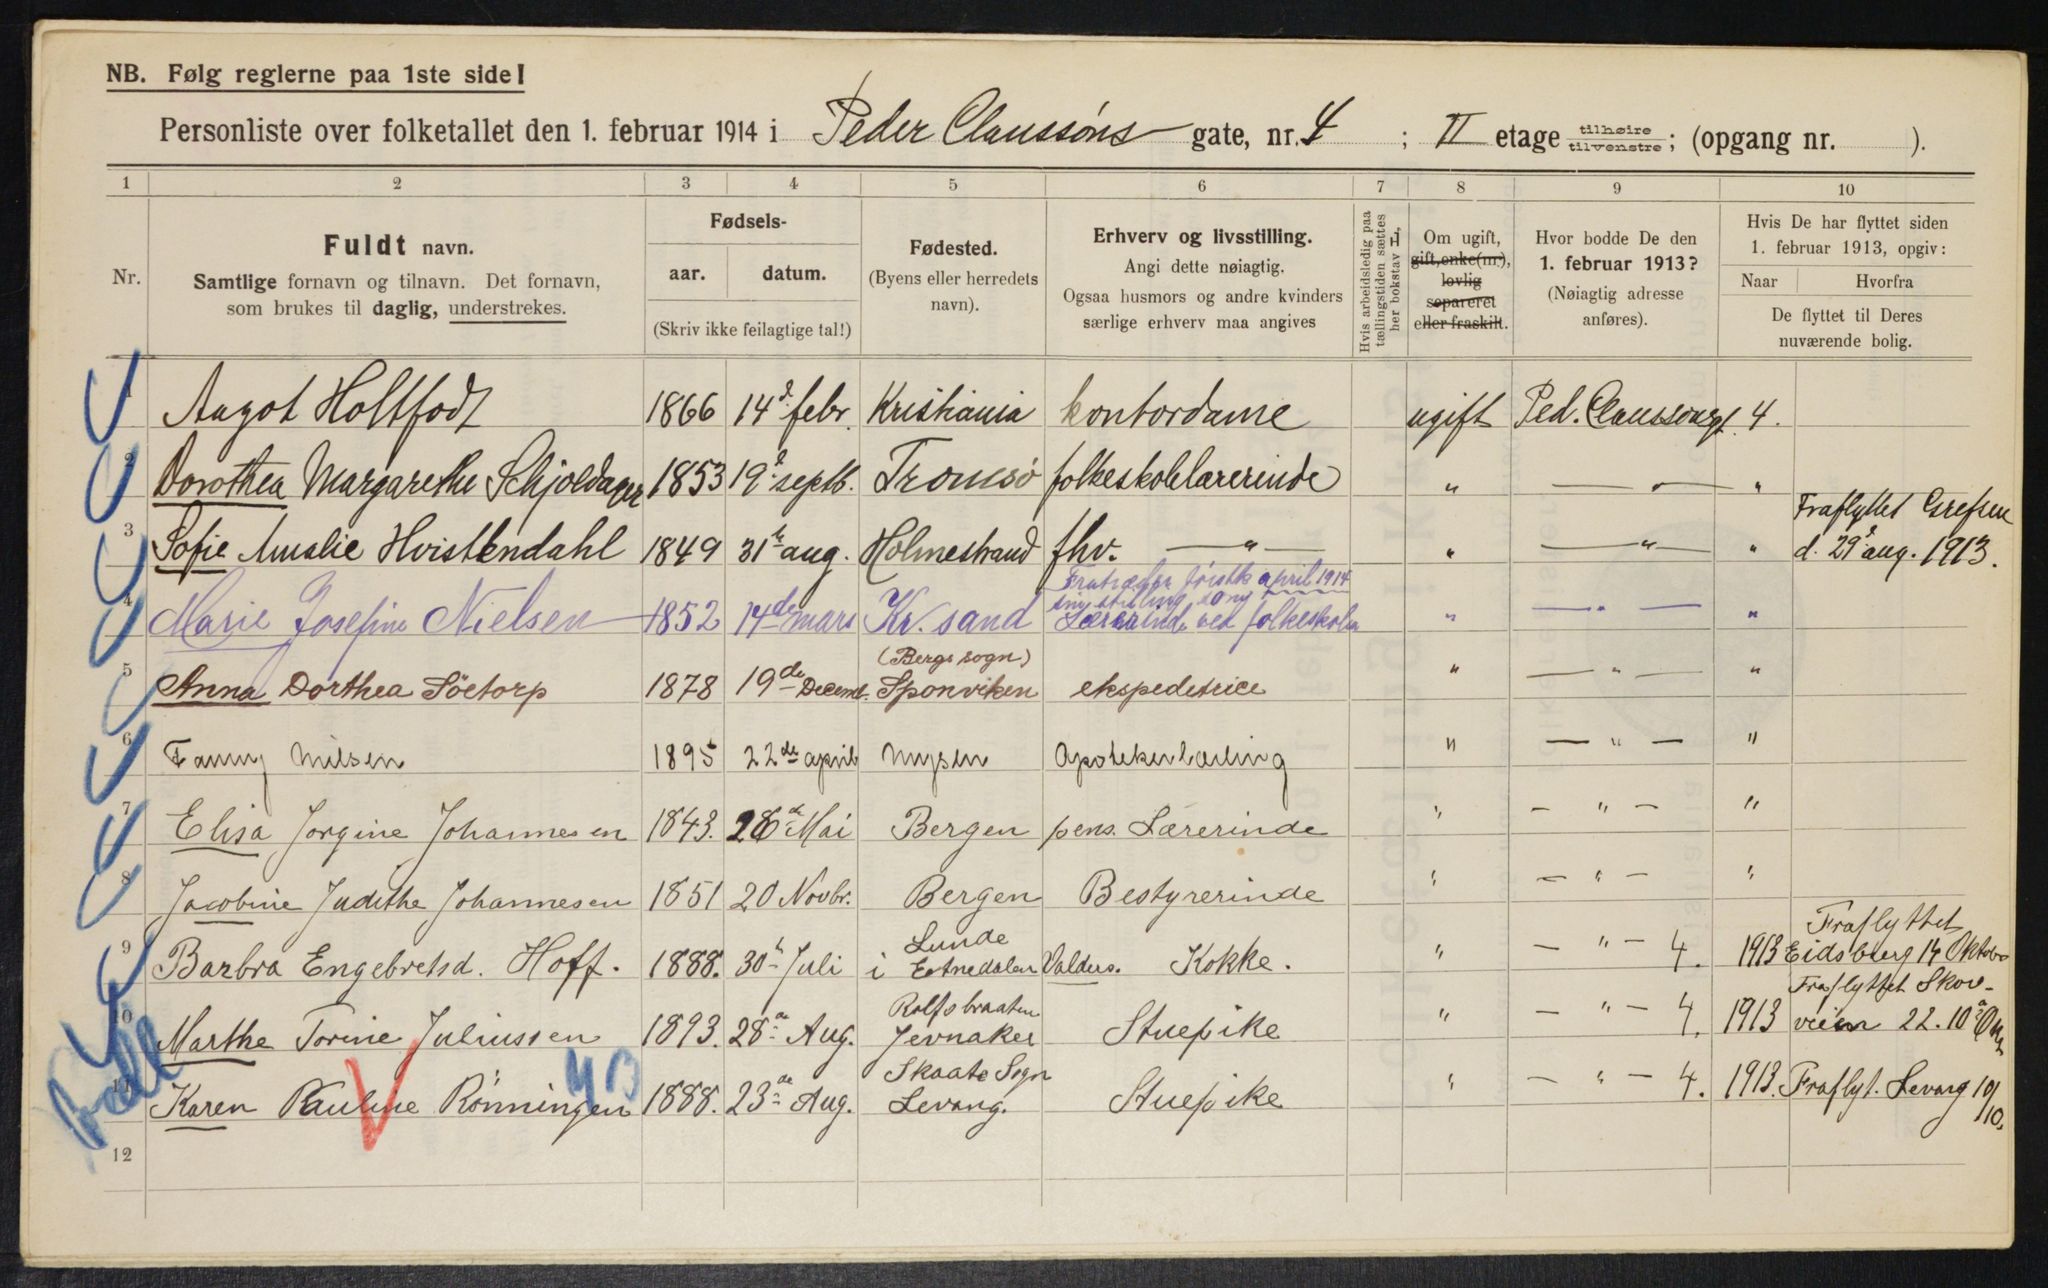 NB. Følg reglerne paa 1ste side!
Personliste over folketallet den 1. februar 1914 i Peder Claussöns gate, nr. 4 ; II etage tilhøire tilvenstre ; (opgang nr. ).
1 2 3 4 5 6 7 8 9 10
Nr.
Fuldt navn.
Samtlige fornavn og tilnavn. Det fornavn,
som brukes til daglig, understrekes.
Fødsels-
aar. datum.
(Skriv ikke feilagtige tal!)
Fødested.
(Byens eller herredets
navn).
Erhverv og livsstilling.
Angi dette nøiagtig.
Ogsaa husmors og andre kvinders
særlige erhverv maa angives
Hvis arbeidsledig paa
tællingstiden sættes
her bokstav L.
Om ugift,
gift, enke(m.),
lovlig
separeret
eller fraskilt.
Hvor bodde De den
1. februar 1913?
(Nøiagtig adresse
anføres).
Hvis De har flyttet siden
1. februar 1913, opgiv:
Naar Hvorfra
De flyttet til Deres
nuværende bolig.
1 Aagot Holtfodt 1866 14d febr. Kristiania kontordame ugift Ped. Claussønsgt. 4.
2 Dorothea Margarethe Schjoldager 1853 19d septb. Tromsö folkeskolelærerinde " — " — "
3 Sofie Amalie Hvistendahl 1849 31te aug. Holmestrand fhv. — " — " — " — " Fraflyttet Grefsen
d. 29d aug. 1913.
4 Marie Josefine Nielsen 1852 14de mars Kr. sand Fratræder först april 1914
min stilling som
Lærerinde ved folkeskolen " — " — "
5 Anna Dorthea Söetorp 1878 19de Decemb. (Bergs sogn)
Sponviken ekspeditrice " — " — "
6 Fanny Nilsen 1895 22de april Mysen Apotekerlærling " — " — "
7 Elisa Jorgine Johannesen 1843. 28de Mai Bergen pens. Lærerinde " — " — "
8 Jacobine Judithe Johannesen 1851 20 Novbr. Bergen Bestyrerinde " — " — "
9 Barbra Engebretsd. Hoff. 1888. 30te Juli i Lunde
Etnedalen Valders. Kokke. " — " — 4. 1913 Fraflyttet
Eidsberg 14 Oktober
10 Marthe Torine Juliussen 1893. 28de Aug. Rolfsbraaten
Jevnaker Stuepike " — " — 4. 1913 Fraflyttet Skov-
veien 22. 10de Okt.
11 Karen Pauline Rönningen 1888. 23de Aug. Skaate Sogn
Levang. Stuepike " — " — 4. 1913. Fraflyt. Levang 10/10.
12